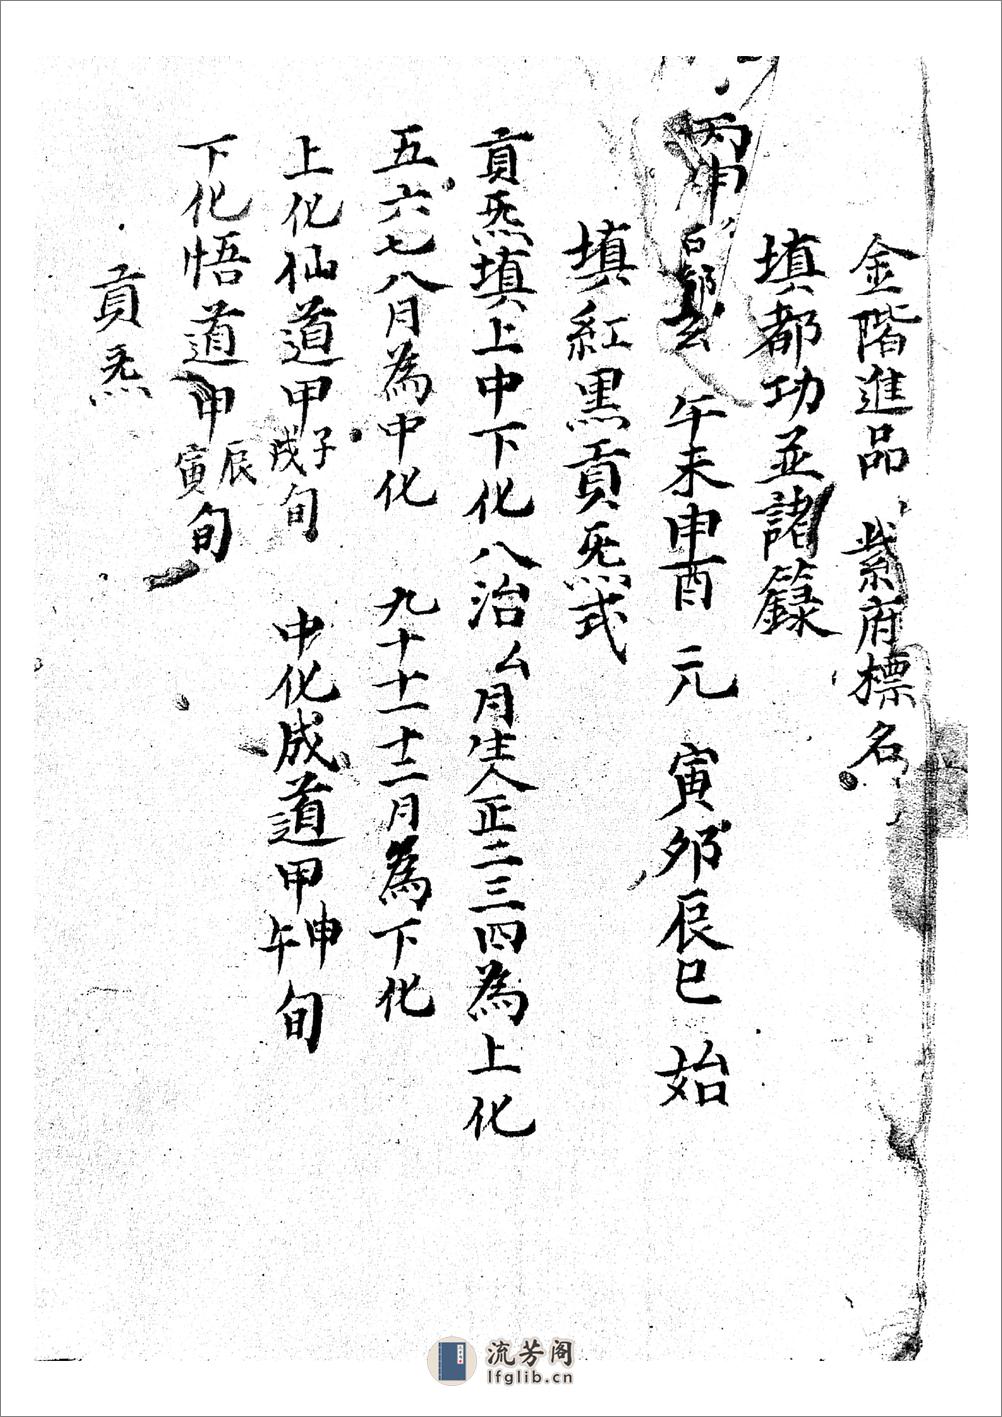 金階進品 紫府標名
填都功並諸籙
玄 午未申酉 元 寅夘辰巳 始
填紅黑貢炁式
貢炁填上中下化八治厶月生人正二三四為上化
五六七八月為中化 九十十一十二月為下化
上化仙道甲子戌旬 中化成道甲申午旬
下化悟道甲辰寅旬
貢炁
流芳阁
lfglib.cn